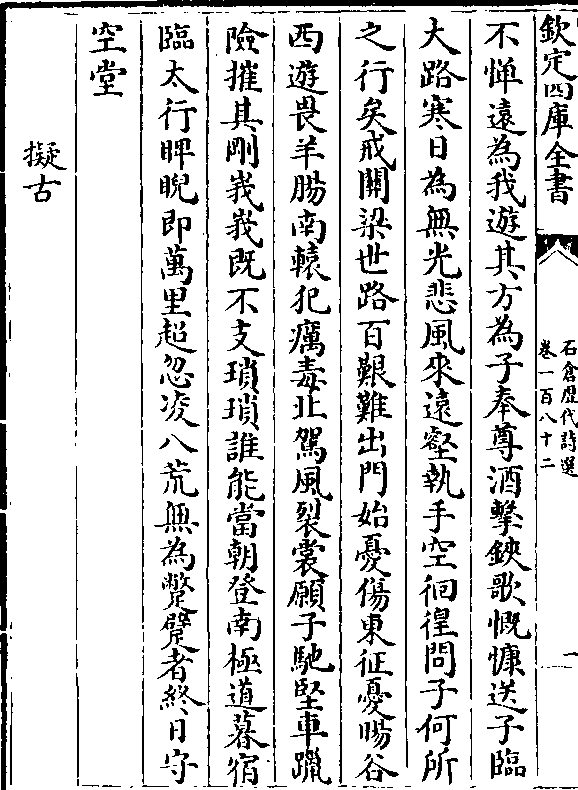 欽定四庫全書
石倉歷代詩選
卷一百八十二
一
不憚遠為我遊其方為子奉尊酒擊鋏歌慨慷送子臨
大路寒日為無光悲風來遠壑執手空徊徨問子何所
之行矣戒關梁世路百艱難出門始憂傷東征憂暘谷
西遊畏羊腸南轅犯癘毒北駕風裂裳願子馳堅車躐
險摧其剛峩峩既不支瑣瑣誰能當朝登南極道暮宿
臨太行睥睨即萬里超忽凌八荒無為蹩躠者終日守
空堂
擬古